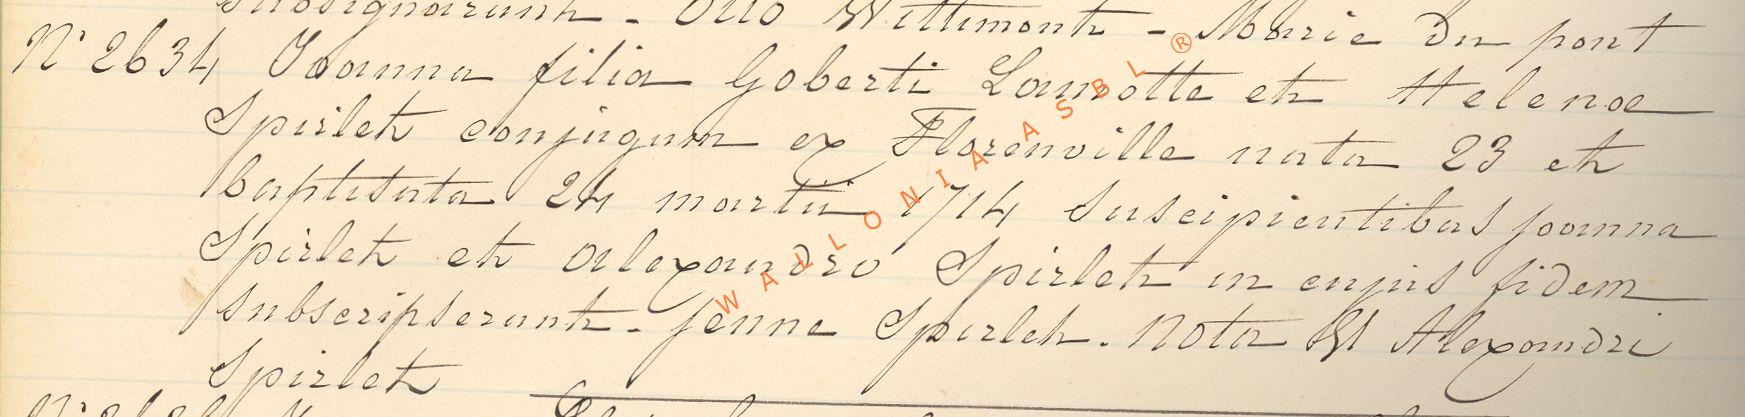 subsignarunt - Otto Wittimont - Marie Du pont
N° 2634 Joanna filia Goberti Lamotte et Helenae
Spirlet conjugum ex Florenville nata 23 et
baptisata 24 martii 1714 suscipientibus joanna
Spirlet et alexandro Spirlet in cujus fidem
subscripserunt - jenne Spirlet. Nota Alexandri
Spirlet
WALLONIA ASBL ®